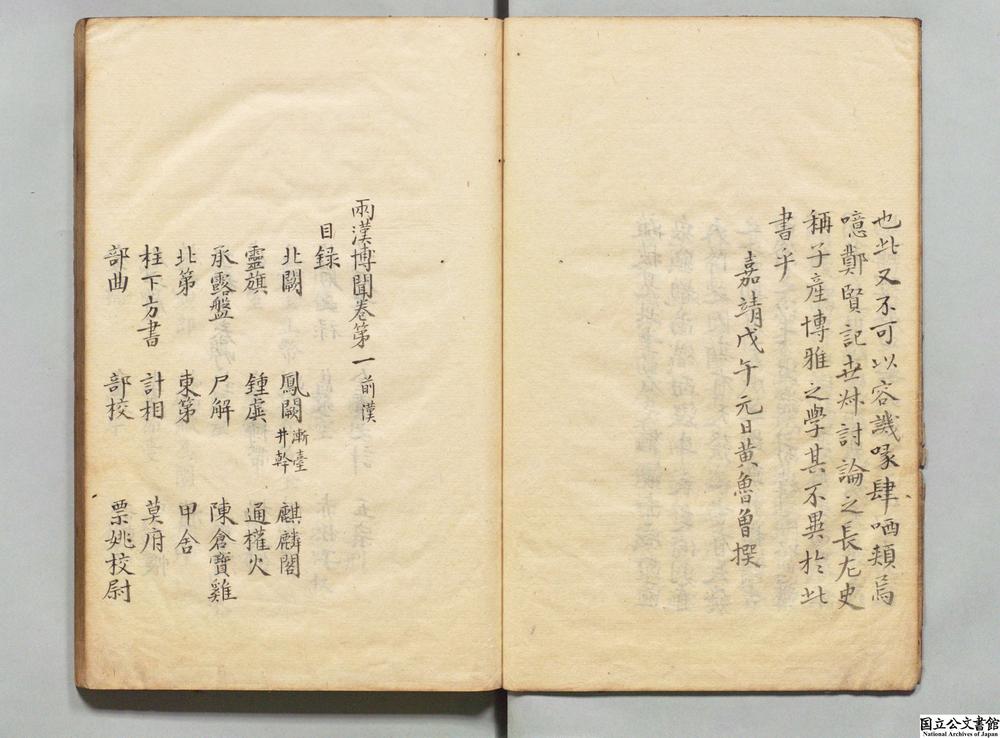 也此又不可以容譏喙肆哂頬焉
噫鄭賢記世叔討論之長左史
稱子産博雅之學其不異於此
書乎
嘉靖戊午元日黄魯曾撰
兩漢博聞卷第一前漢
目録
北闕 鳳闕漸臺井幹 麒麟閣
靈旗 鍾虡 通權火
承露盤 尸解 陳倉寶雞
北第 東第 甲舍
柱下方書 計相 莫府
部曲 部校 票姚校尉
国立公文書館
National Archives of Japan